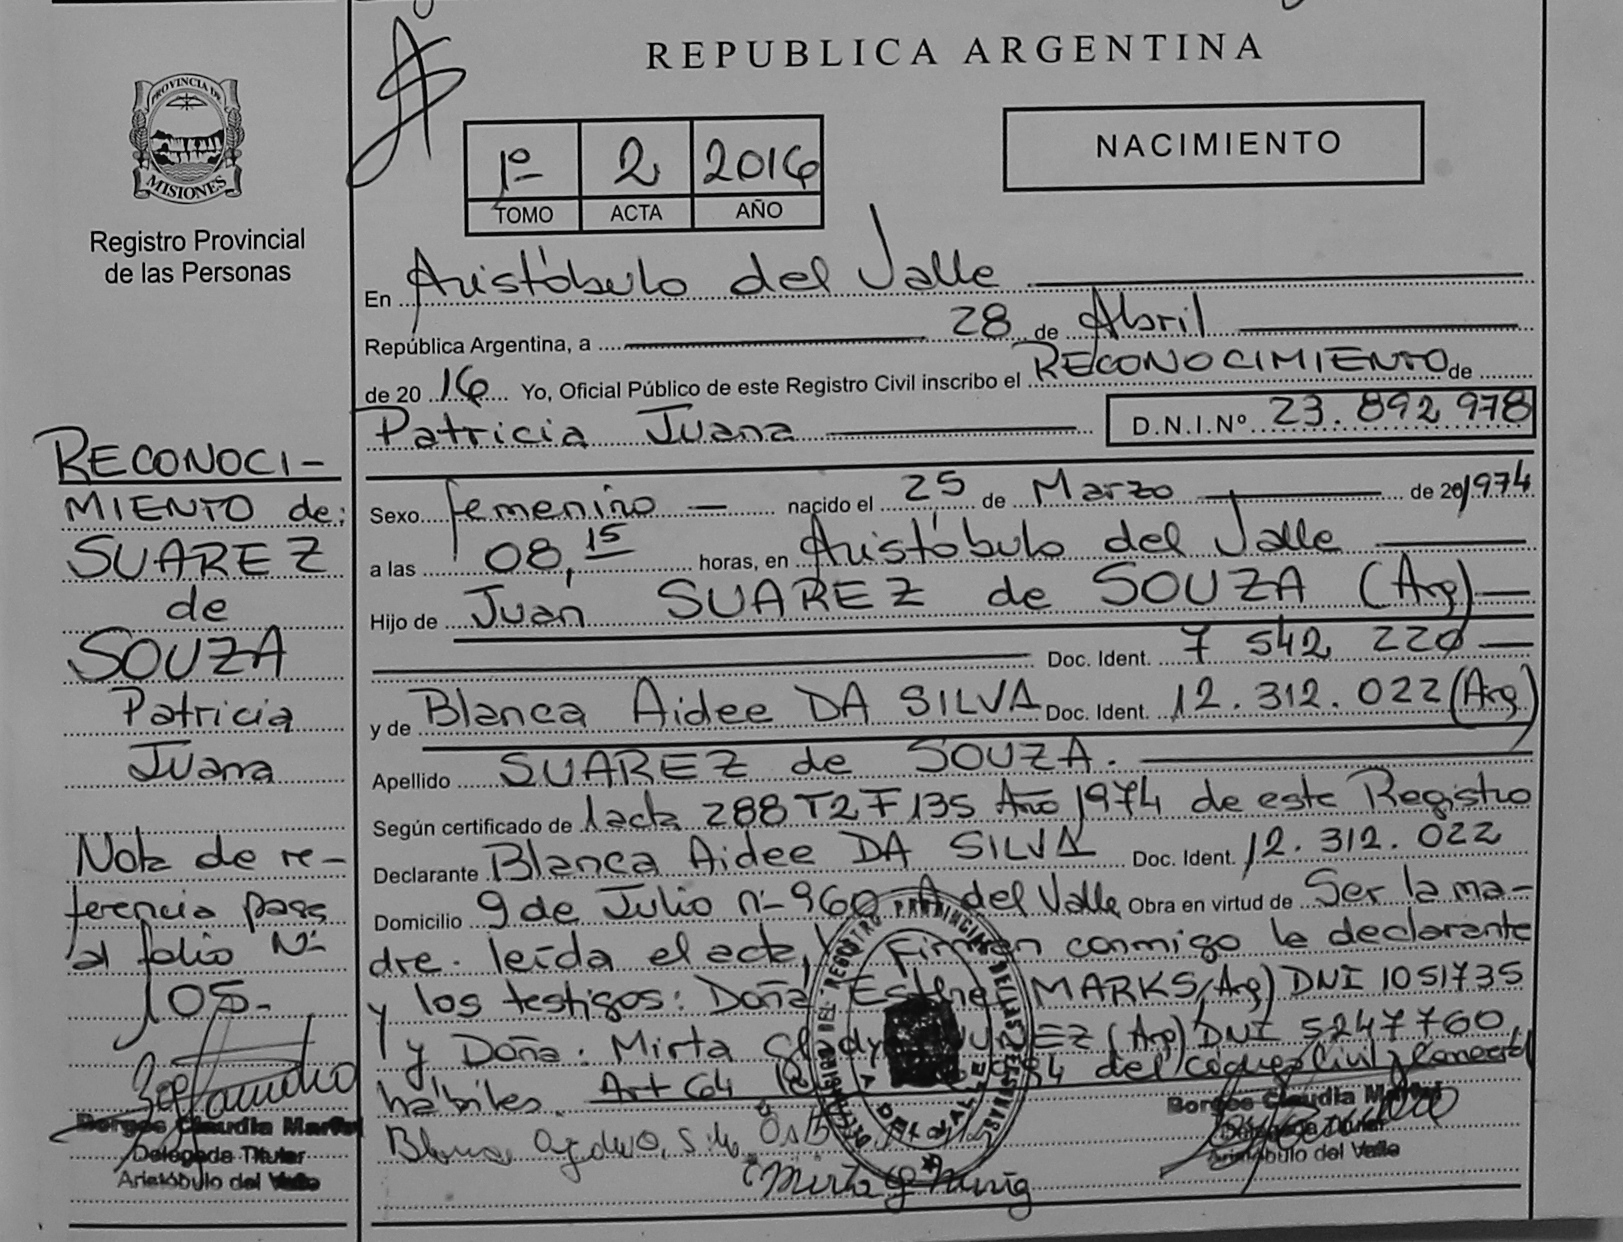 REPUBLICA ARGENTINA
PROVINCIA DE
MISIONES
Registro Provincial
de las Personas
1º 2 2016
TOMO ACTA AÑO
NACIMIENTO
En Aristóbulo del Valle
República Argentina, a 28 de Abril
de 2016 Yo, Oficial Público de este Registro Civil inscribo el RECONOCIMIENTO de
Patricia Juana D.N.I.Nº 23.892978
Sexo femenino nacido el 25 de Marzo de 20 1974
a las 08,15 horas, en Aristóbulo del Valle
Hijo de Juan SUAREZ de SOUZA (Arg)
Doc. Ident. 7 542 220
y de Blanca Aidee DA SILVA Doc. Ident. 12.312.022 (Arg)
Apellido SUAREZ de SOUZA.
Según certificado de 1 acta 288 T2 F 135 Año 1974 de este Registro
Declarante Blanca Aidee DA SILVA Doc. Ident. 12.312.022
Domicilio 9 de Julio nº 960 A del Valle Obra en virtud de Ser la ma-
dre. leída el acta, Firman conmigo la declarante
y los testigos: Doña MARKS (Arg) DNI 1051735
y Doña: Mirta (Arg) DNI 5247760,
hábiles. Art 64 del Civil y Comercial
RECONOCI-
MIENTO de:
SUAREZ
de
SOUZA
Patricia
Juana
Nota de re-
ferencia pasa
al folio Nº
105-
Borges Claudia
Delegada Titular
Aristóbulo del Valle
Borges Claudia
Delegada Titular
Aristóbulo del Valle